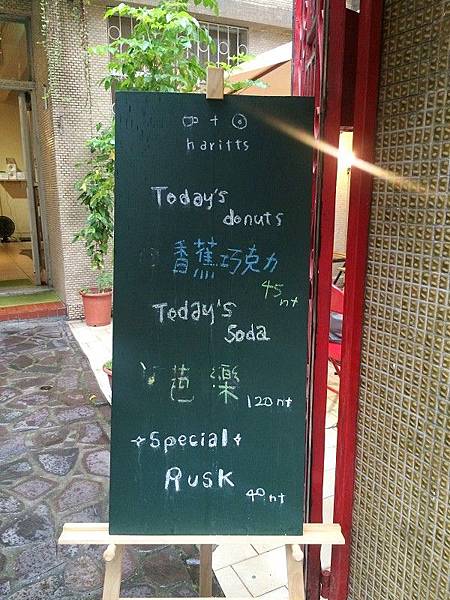 +
haritts
Today's
donuts
香蕉巧克力
45nt
Today's
Soda
芭樂
120nt
Special
RUSK
40nt